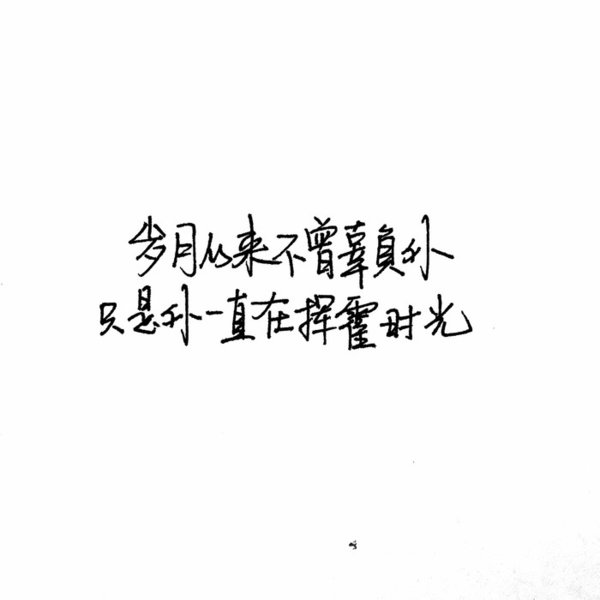 岁月从来不曾辜負你
只是你一直在挥霍时光